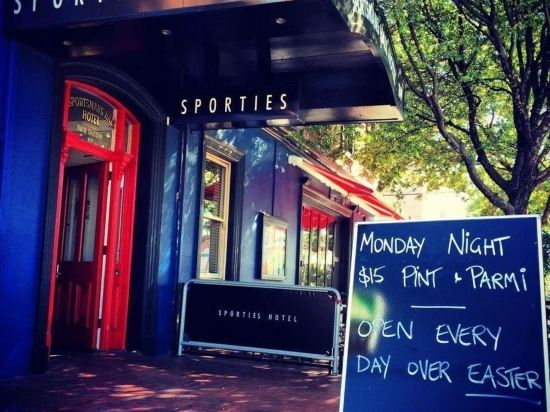 SPORTIES
SPORTSMANS
HOTEL
SPORTIES HOTEL
MONDAY NIGHT
$15 PINT & PARMI
OPEN EVERY
DAY OVER EASTER